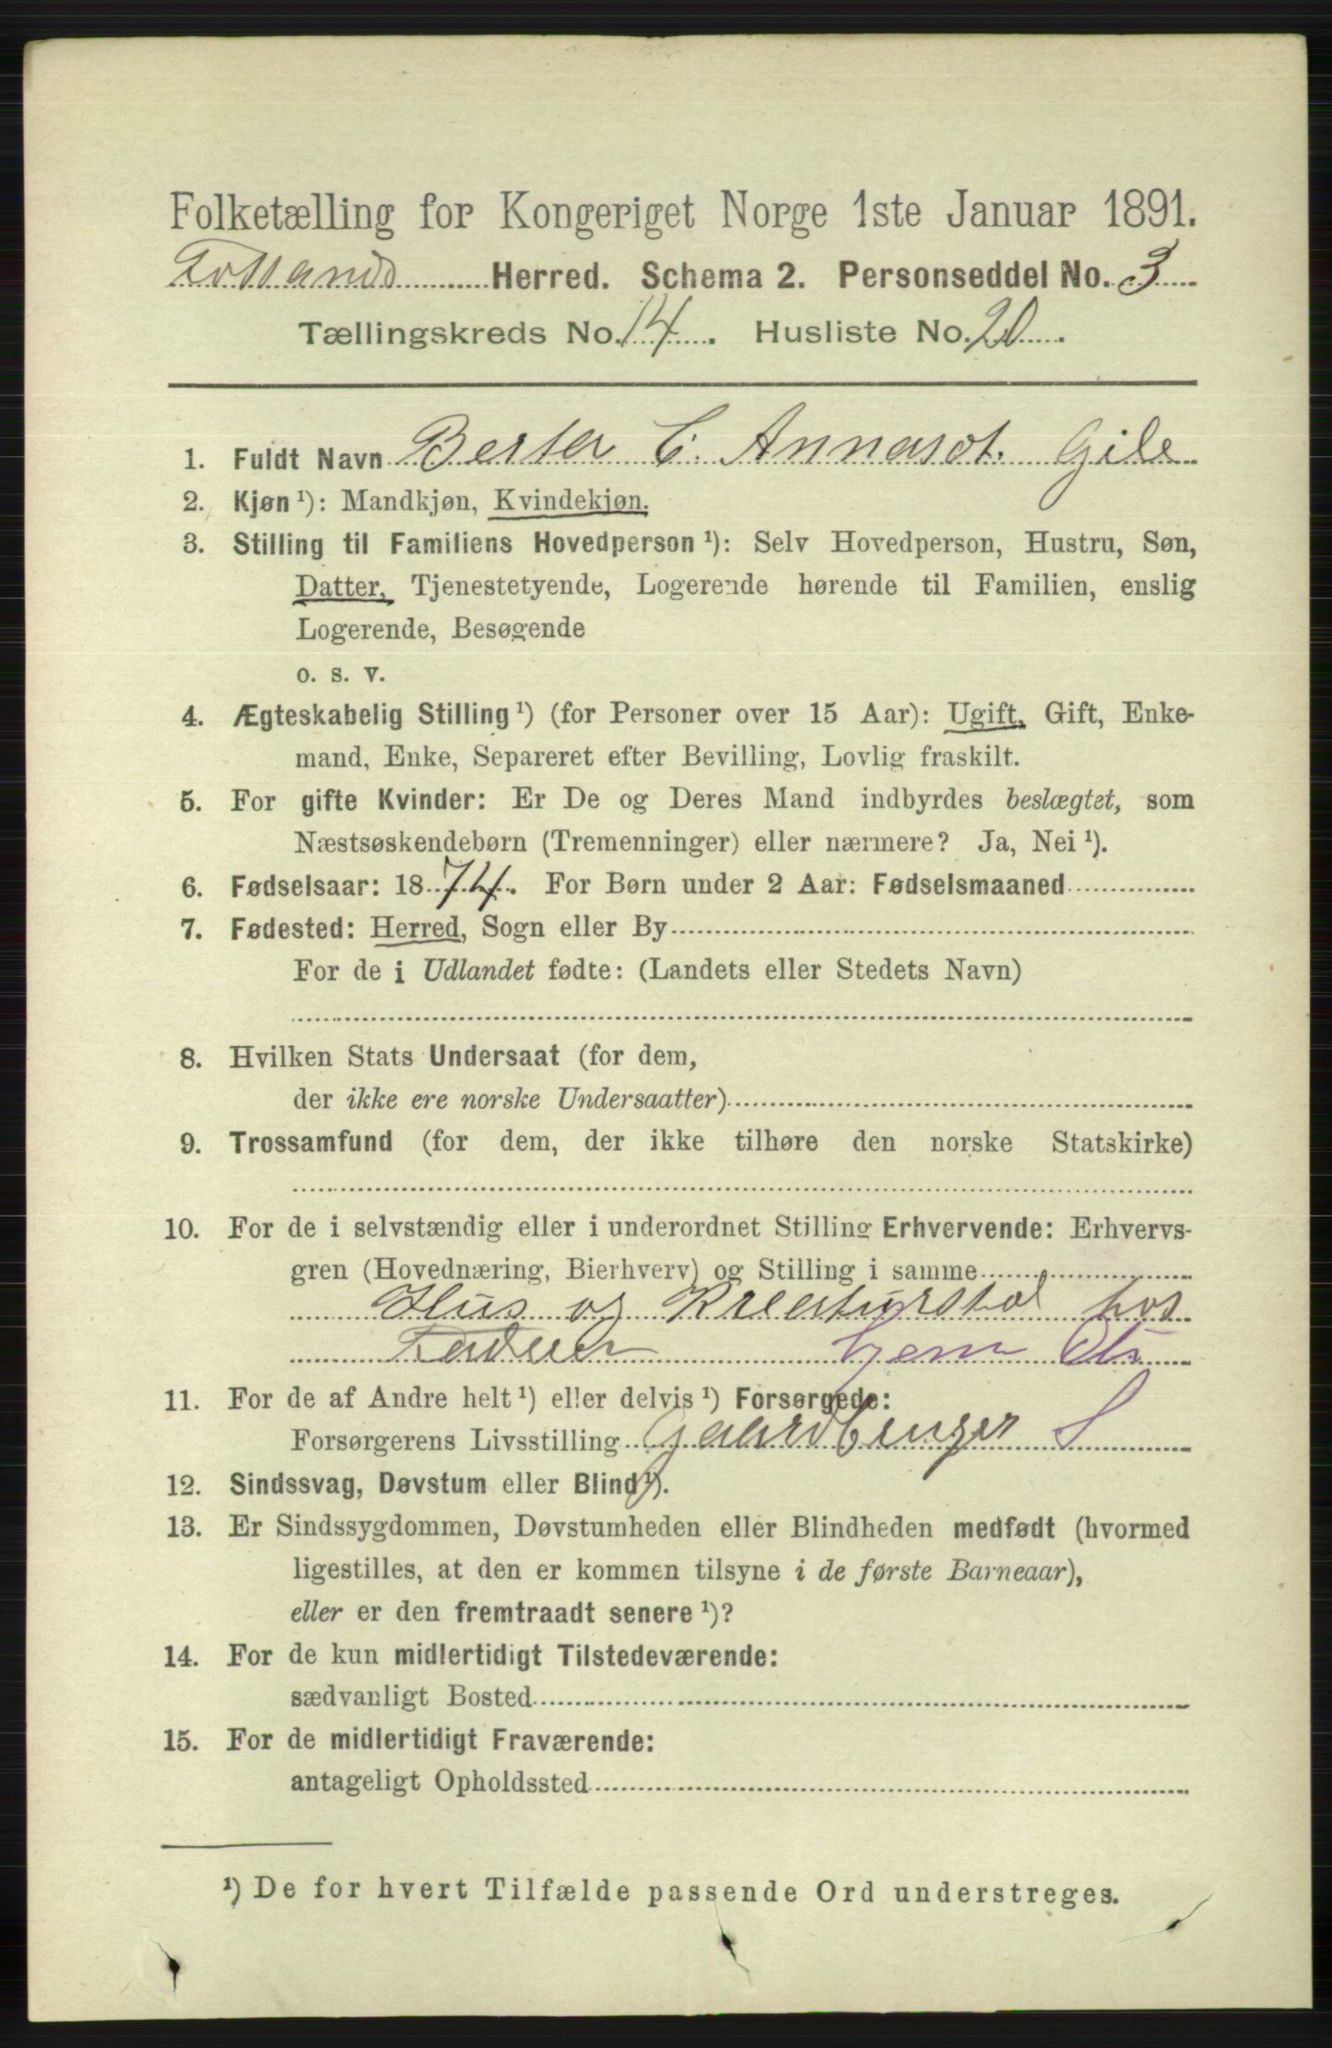 Folketælling for Kongeriget Norge 1ste Januar 1891.
Herred. Schema 2. Personseddel No. 3
Tællingskreds No. 14. Husliste No. 20.
1. Fuldt Navn Berter C. Annasdt. Gile
2. Kjøn ¹): Mandkjøn, Kvindekjøn.
3. Stilling til Familiens Hovedperson ¹): Selv Hovedperson, Hustru, Søn,
Datter, Tjenestetyende, Logerende hørende til Familien, enslig
Logerende, Besøgende
o. s. v.
4. Ægteskabelig Stilling ¹) (for Personer over 15 Aar): Ugift, Gift, Enke-
mand, Enke, Separeret efter Bevilling, Lovlig fraskilt.
5. For gifte Kvinder: Er De og Deres Mand indbyrdes beslægtet, som
Næstsøskendebørn (Tremenninger) eller nærmere? Ja, Nei ¹).
6. Fødselsaar: 1874. For Børn under 2 Aar: Fødselsmaaned
7. Fødested: Herred, Sogn eller By
For de i Udlandet fødte: (Landets eller Stedets Navn)
8. Hvilken Stats Undersaat (for dem,
der ikke ere norske Undersaatter)
9. Trossamfund (for dem, der ikke tilhøre den norske Statskirke)
10. For de i selvstændig eller i underordnet Stilling Erhvervende: Erhvervs-
gren (Hovednæring, Bierhverv) og Stilling i samme
Hus og Kreaturstel hos
Fader hjem
11. For de af Andre helt ¹) eller delvis ¹) Forsørgede:
Forsørgerens Livsstilling Gaardbruger S
12. Sindssvag, Døvstum eller Blind ¹).
13. Er Sindssygdommen, Døvstumheden eller Blindheden medfødt (hvormed
ligestilles, at den er kommen tilsyne i de første Barneaar),
eller er den fremtraadt senere ¹)?
14. For de kun midlertidigt Tilstedeværende:
sædvanligt Bosted
15. For de midlertidigt Fraværende:
antageligt Opholdssted
¹) De for hvert Tilfælde passende Ord understreges.